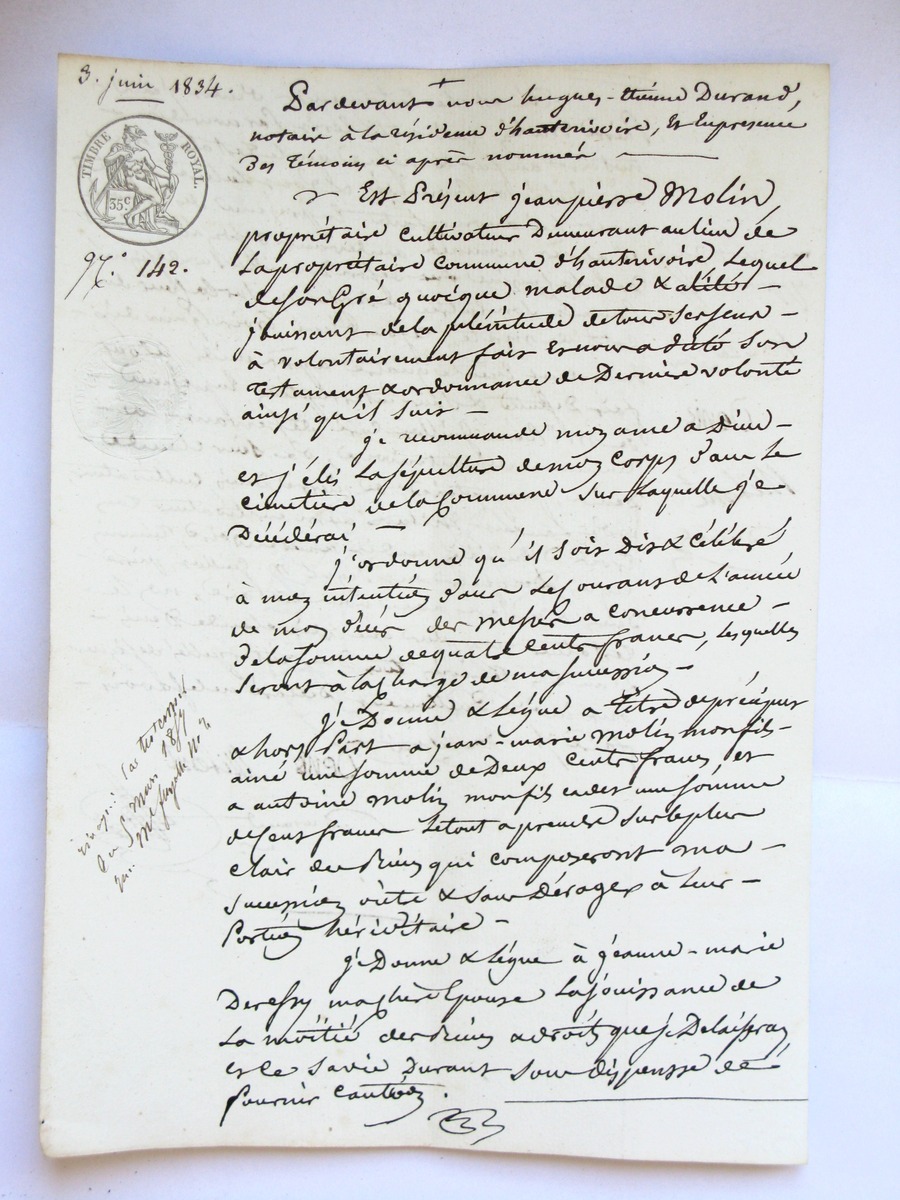 3. juin 1834.
TIMBRE ROYAL.
35c
N.o 142.
Pardevant + nous hugues-étienne Durand,
notaire à la résidence d'hauterivoire, et en presence
des témoins ci après nommés
Est Présent jean pierre Molin,
propriétaire cultivateur Demeurant au lieu de
La propriétaire commune d'hauterivoire, Lequel
de son Gré quoique malade & alité
jouissant de la plénitude de tous ses sens
à volontairement fait et nous a dicté son
testament & ordonnance de Dernière volonté
ainsi qu'il suit
je recommande mon ame a Dieu
et j'élis La sépulture de mon corps dans Le
cimetière de la Commune sur Laquelle je
Décéderai
j'ordonne qu'il soit Dit & célébré
à mon intention dans Le courant de L'année
de mon décès des messes a concurrence
de la somme de quatre cents francs, Lesquelles
seront à la charge de ma succession
je Donne & Légue a titre de préciput
& hors Part a jean-marie molin mon fils
ainé une somme de Deux cents francs et
a antoine molin mon fils cadet une somme
de cent francs Le tout a prendre sur le plus
clair des Biens qui composeront ma
succession & sans Déroger à Leur
Portion héréditaire
je Donne & Légue à jeanne-marie
ma chère Epouse La jouissance de
La moitié des Biens & droits que je Delaisserai
et ce sa vie Durant sous dispensse de
fournir caution.
Mars